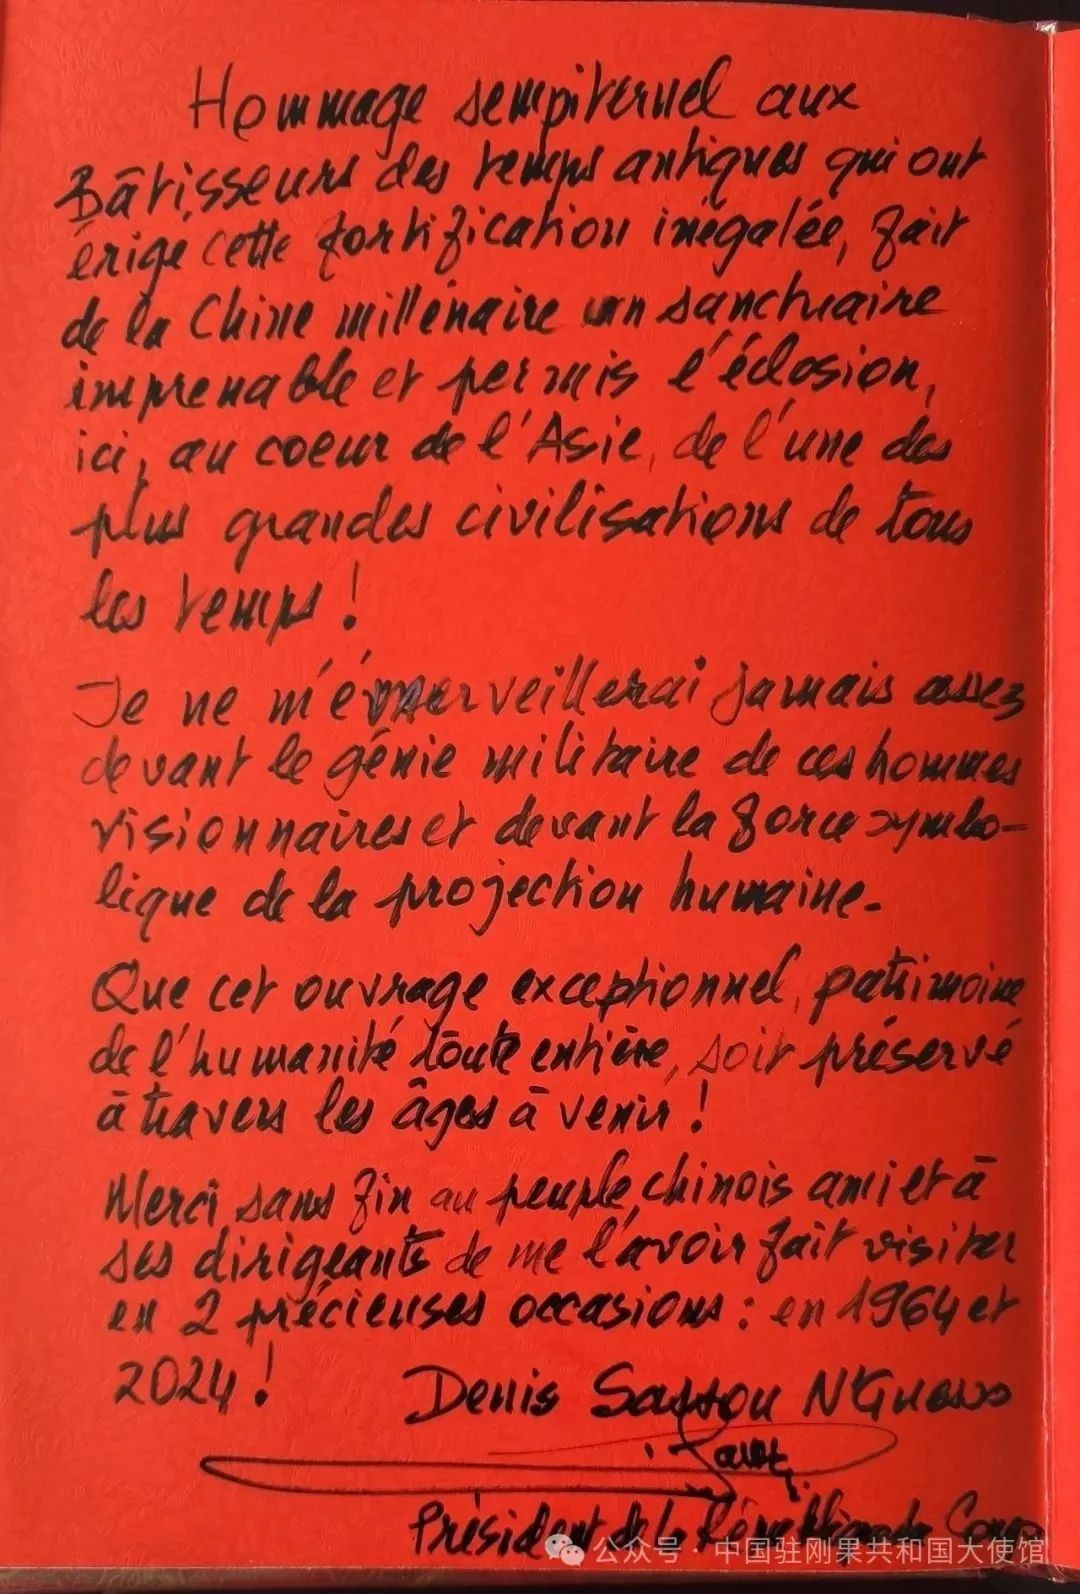 Hommage sempiternel aux
Bâtisseurs des temps antiques qui ont
érigé cette fortification inégalée, fait
de la Chine millénaire un sanctuaire
imprenable et permis l'éclosion,
ici, au coeur de l'Asie, de l'une des
plus grandes civilisations de tous
les temps !
Je ne m'émerveillerai jamais assez
devant le génie militaire de ces hommes
visionnaires et devant la force symbo-
lique de la projection humaine.
Que cet ouvrage exceptionnel, patrimoine
de l'humanité toute entière, soit préservé
à travers les âges à venir !
Merci sans fin au peuple chinois ami et à
ses dirigeants de me l'avoir fait visiter
en 2 précieuses occasions : en 1964 et
2024 !
Denis Sassou N'Guesso
Président de la République du Congo
公众号 · 中国驻刚果共和国大使馆